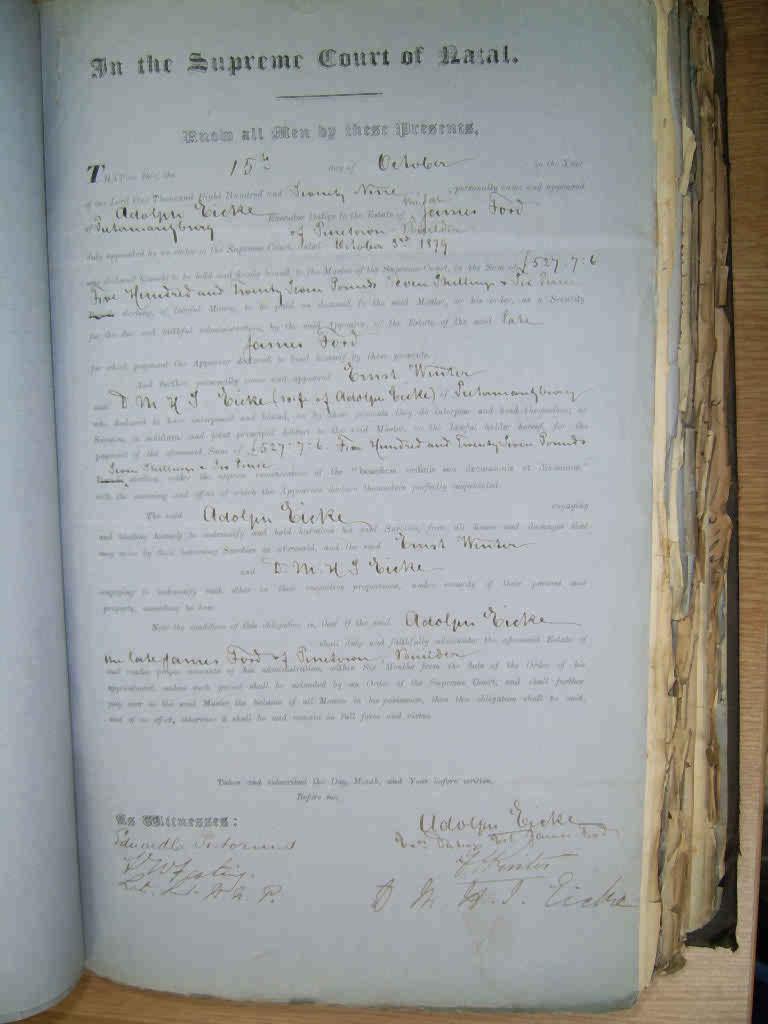 In the Supreme Court of Natal.
Know all Men by these Presents,
THAT on this the 15th day of October in the Year
of our Lord One Thousand Eight Hundred and Seventy Nine, personally came and appeared
Adolph Eicke Executor Dative to the Estate of the late James Ford
of Pietermaritzburg of Pinetown Builder
duly appointed by an order to the Supreme Court, dated October 3rd 1879
and declared himself to be held and firmly bound, to the Master of the Supreme Court, in the Sum of £527-7-6
Five Hundred and Twenty Seven Pounds Seven Shillings & Six Pence
sterling, of lawful Money, to be paid on demand, to the said Master, or his order, as a Security
for the due and faithful administration, by the said Appearer, of the Estate of the said late
James Ford
for which payment the Appearer declared to bind himself by these presents.
And further personally came and appeared Ernst Winter
and D M H J Eicke (wife of Adolph Eicke) of Pietermaritzburg
who declared to have interposed and bound, as by these presents they do interpose and bind themselves, as
Sureties, in solidum, and joint principal debtors to the said Master, or the lawful holder hereof, for
payment of the aforesaid Sum of £527-7-6. Five Hundred and Twenty Seven Pounds
Seven Shillings & Six Pence
sterling, under the express renunciation of the "beneficia ordinis seu excussionis et divisionis,"
with the meaning and effect of which the Appearers declare themselves perfectly acquainted.
The said Adolph Eicke engaging
and binding himself to indemnify and hold harmless his said Sureties, from all losses and damages that
may arise by their becoming Sureties as aforesaid, and the said Ernst Winter
and D M H J Eicke
engaging to indemnify each other in their respective proportions, under security of their persons and
property, according to law.
Now the condition of this obligation is, that if the said Adolph Eicke
shall duly and faithfully administer the aforesaid Estate of
the late James Ford of Pinetown Builder
and render proper accounts of his administration, within Six Months from the date of the Order of his
appointment, unless such period shall be extended by an Order of the Supreme Court, and shall further
pay over to the said Master the balance of all Monies in his possession, then this obligation shall be void,
and of no effect, otherwise it shall be and remain in full force and virtue.
Taken and subscribed the Day, Month, and Year before written,
Before me,
As Witnesses:
Adolph Eicke
James Ford
D M H. J. Eicke